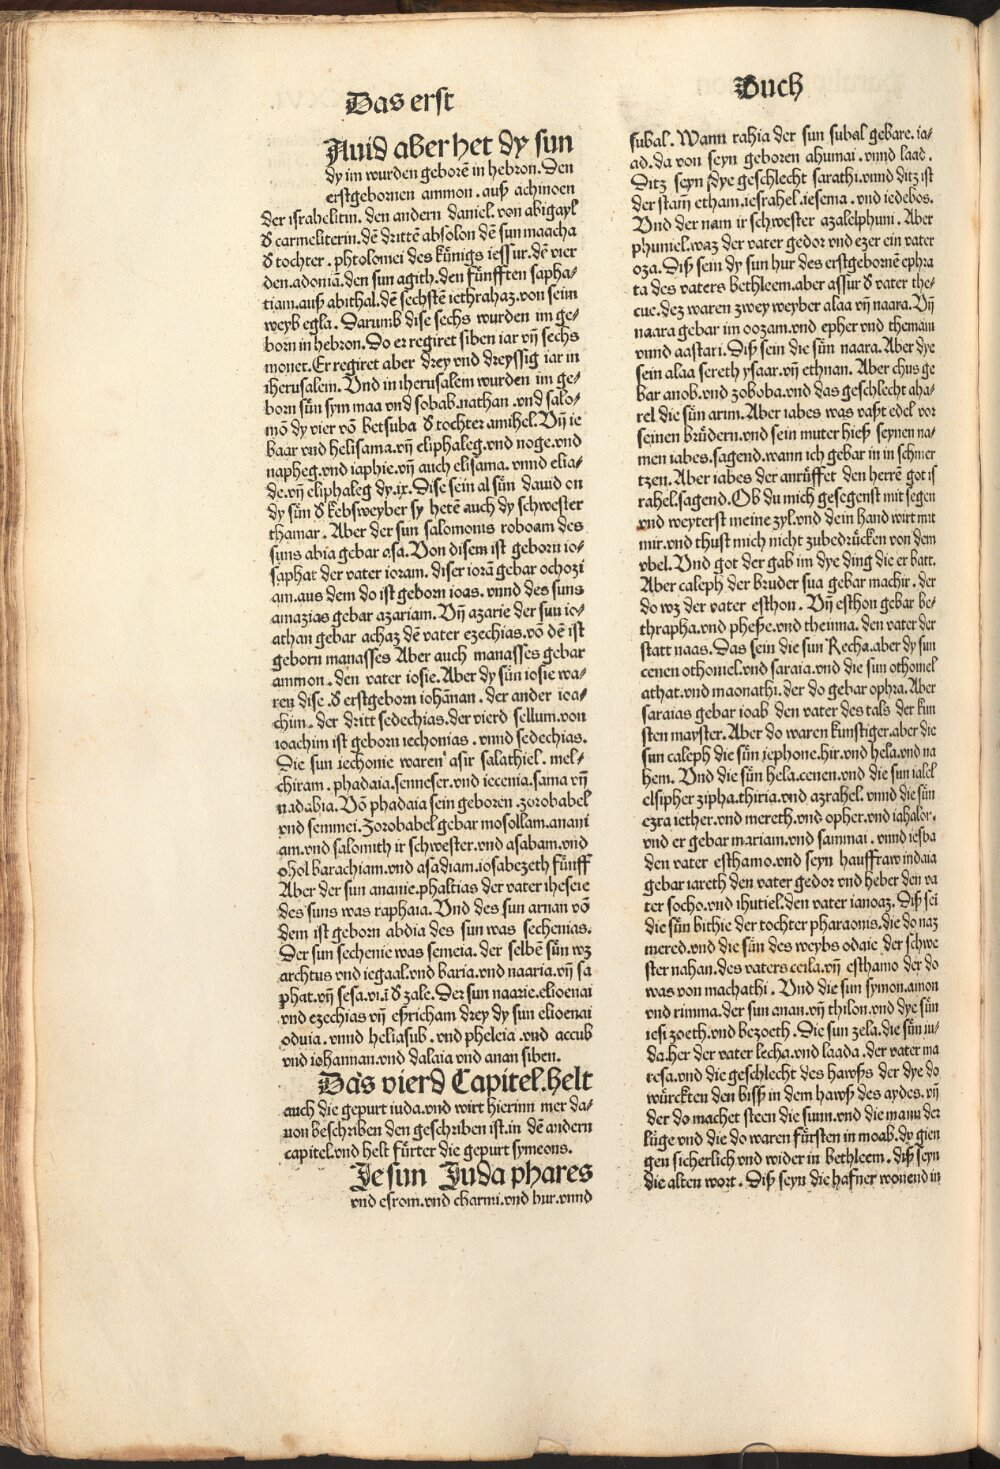 Das erst
Buch
Auid aber het dy sun
dy im wurden geborē in hebron. Den
erstgebornen ammon. auß achinoen
der israhelitin. den andern daniel. von abigayl
d̕ carmeliterin. dē drittē absolon dē sun maacha
d̕ tochter. phtolomei des kuͤnigs iessur. dē vier
den. adoniā. den sun agith. den fuͤnfften sapha⸗
tiam. auß abithal. dē sechstē iethrahaz. von seim
weyb egla. Darumb dise sechs wurden im ge⸗
born in hebron. Do er regiret siben iar vn̄ sechs
monet. Er regiret aber drey vnd dreyssig iar in
iherusalem. Vnd in iherusalem wurden im ge⸗
born suͤn sym maa vnd sobab. nathan. vnd salo⸗
mō dy vier vō betsuba d̕ tochter amihel. Vn̄ ie
baar vnd helisama. vn̄ eliphaleg. vnd noge. vnd
napheg. vnd iaphie. vn̄ auch elisama. vnnd elia⸗
de. vn̄ eliphaleg dy. ix. Dise sein al suͤn dauid on
dy suͤn d̕ kebsweyber sy hetē auch dy schwester
thamar. Aber der sun salomonis roboam des
suns abia gebar asa. Von disem ist geborn io⸗
saphat der vater ioram. diser iorā gebar ochozi
am. aus dem do ist geborn ioas. vnnd des suns
amazias gebar azariam. Vn̄ azarie der sun io⸗
athan gebar achaz dē vater ezechias. vō dē ist
geborn manasses Aber auch manasses gebar
ammon. den vater iosie. Aber dy suͤn iosie wa⸗
ren dise. d̕ erstgeborn iohānan. der ander ioa⸗
chim. der dritt sedechias. der vierd sellum. von
ioachim ist geborn iechonias. vnnd sedechias.
Die sun iechonie waren asir salathiel. mel⸗
chiram. phadaia. senneser. vnd iecenia. sama vn̄
nadabia. Vō phadaia sein geboren. zorobabel
vnd semmei. Zorobabel gebar mosollam. anani
am. vnd salomith ir schwester. vnd asabam. vnd
ohol barachiam. vnd asadiam. iosabezeth fuͤnff
Aber der sun ananie. phaltias der vater iheseie
des suns was raphaia. Vnd des sun arnan vō
dem ist geborn abdia des sun was sechenias.
Der sun sechenie was semeia. der selbē suͤn wz
archtus vnd iegaal. vnd baria. vnd naaria. vn̄ sa
phat. vn̄ sesa. vi. ī d̕ zale. Der sun naarie. elioenai
vnd ezechias vn̄ esricham drey dy sun elioenai
oduia. vnnd heliasub. vnd pheleia. vnd accub
vnd iohannan. vnd dalaia vnd anan siben.
Das vierd Capitel. helt
auch die gepurt iuda. vnd wirt hierinn mer da⸗
uon beschriben den geschriben ist. in dē andern
capitel. vnd helt fuͤrter die gepurt symeons.
Ie sun Juda phares
vnd esrom. vnd charmi. vnd hur. vnnd
subal. Wann rahia der sun subal gebare. ia⸗
ad. da von seyn geboren ahumai. vnnd laad.
Ditz seyn dye geschlecht sarathi. vnnd ditz ist
der stam̄ etham. iesrahel. iesema. vnd iedebos.
Vnd der nam ir schwester azalelphuni. Aber
phuniel. waz der vater gedor vnd ezer ein vater
oza. Diß sein dy sun hur des erstgebornē ephra
ta des vaters bethleem. aber assur d̕ vater the⸗
cue. dez waren zwey weyber alaa vn̄ naara. Vn̄
naara gebar im oozam. vnd epher vnd themani
vnnd aastari. Diß sein die suͤn naara. Aber dye
sein alaa sereth ysaar. vn̄ ethnan. Aber chus ge
bar anob. vnd zoboba. vnd das geschlecht aha⸗
rel die suͤn arim. Aber iabes was vaßt edel vor
seinen bruͤdern. vnd sein muter hieß seynen na⸗
men iabes. sagend. wann ich gebar in in schmer
tzen. Aber iabes der anruͤffet den herrē got is
rahel. sagend. Ob du mich gesegenst mit segen
vnd weyterst meine zyl. vnd dein hand wirt mit
mir. vnd thust mich nicht zubedruͤcken von dem
vbel. Vnd got der gab im dye ding die er batt.
Aber caleph der bruder sua gebar machir. der
do wz der vater esthon. Vn̄ esthon gebar be⸗
thrapha. vnd pheße. vnd theinna. den vater der
statt naas. Das sein die sun Recha. aber dy sun
cenen othoniel. vnd saraia. vnd die sun othoniel
athat. vnd maonathi. der do gebar ophra. Aber
saraias gebar ioab den vater des tals der kun
sten mayster. Aber do waren kunstiger. aber die
sun caleph die suͤn iephone. hir. vnd hela. vnd na
hem. Vnd die suͤn hela. cenen. vnd die sun ialel
elsipher zipha. thiria. vnd azrahel. vnnd die suͤn
ezra iether. vnd mereth. vnd opher. vnd iahalor.
vnd er gebar mariam. vnd sammai. vnnd iesba
den vater esthamo. vnd seyn hauffraw indaia
gebar iareth den vater gedor vnd heber den va
ter socho. vnd ihutiel. den vater ianoaz. Diß sei
die suͤn bithie der tochter pharaonis. die do naz
mered. vnd die suͤn des weybs odaie der schwe
ster nahan. des vaters ceila. vn̄ esthamo der do
was von machathi. Vnd die sun symon. amon
vnd rimma. der sun anan. vn̄ thilon. vnd dye suͤn
iesi zoeth. vnd bezoeth. Die sun zela. die suͤn iu⸗
da. her der vater lecha. vnd laada. der vater ma
resa. vnd die geschlecht des hawßs der dye do
wuͤrckten den biss in dem hawß des aydes. vn̄
der do machet steen die sunn. vnd die mann der
luͤge vnd die do waren fuͤrsten in moab. dy gien
gen sicherlich vnd wider in bethleem. diß seyn
die alten wort. Diß seyn die hafner wonend in